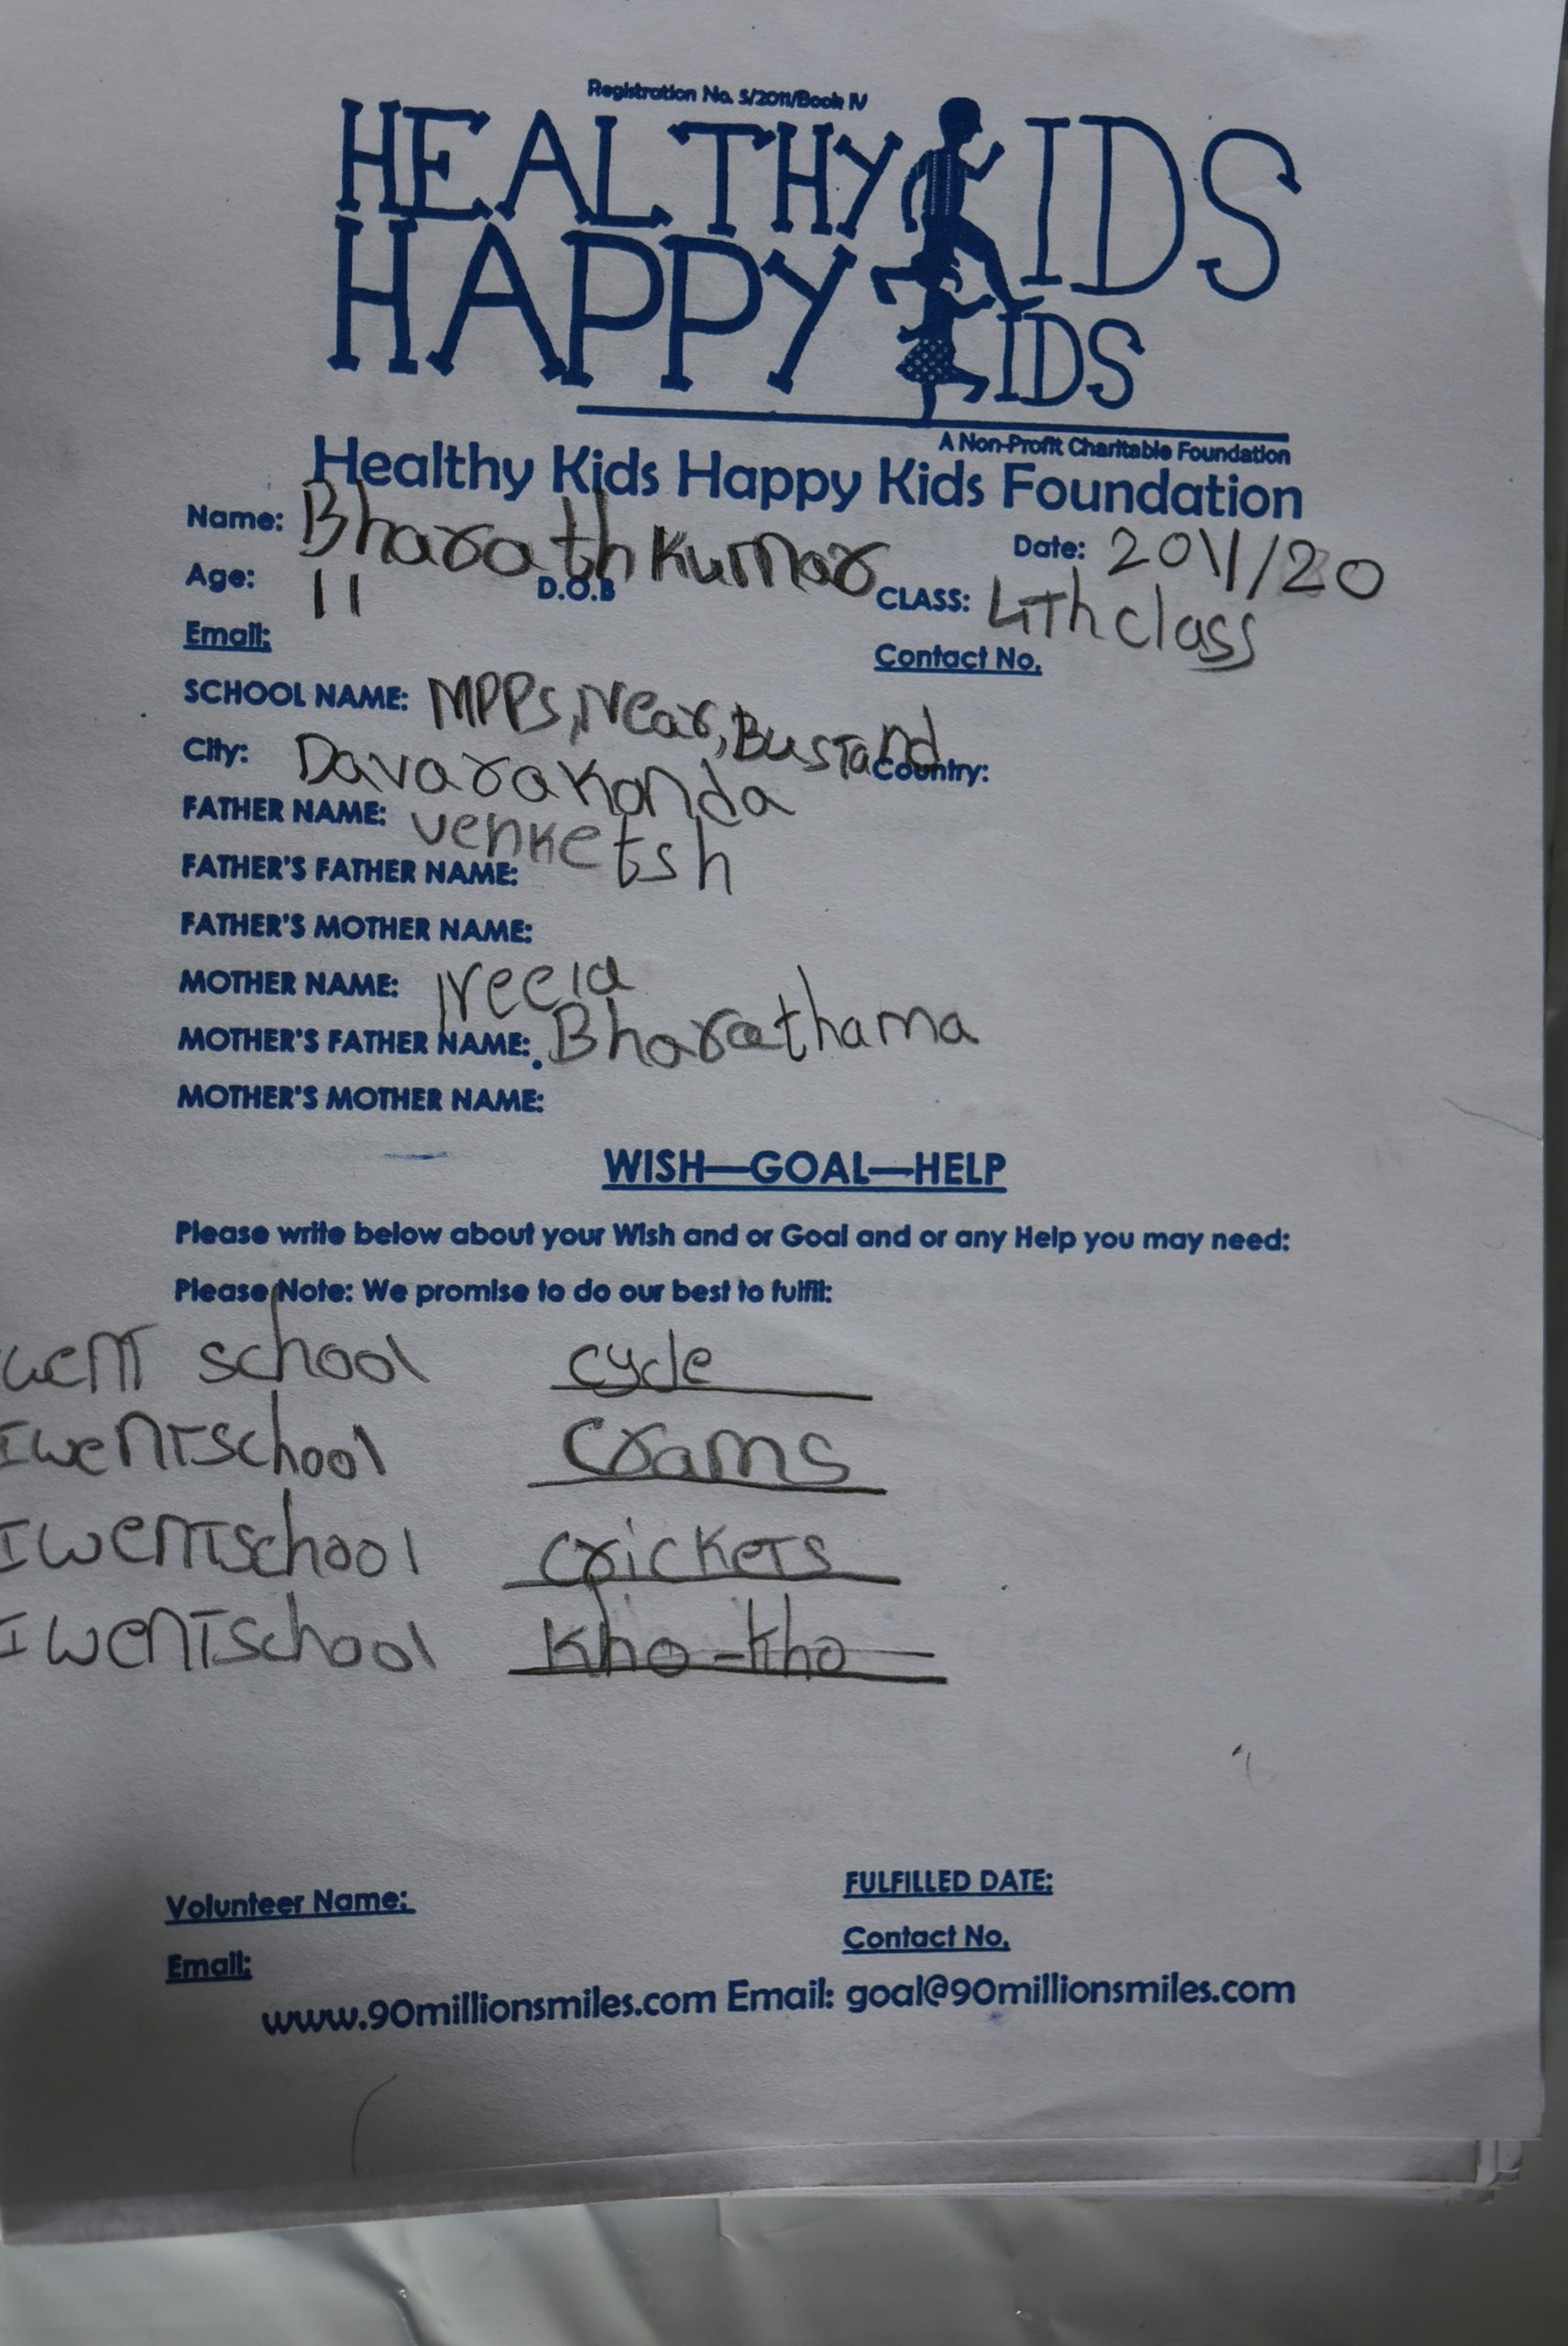 Registration No. 5/2011/Book IV
HEALTHY KIDS
HAPPY KIDS
A Non-Profit Charitable Foundation
Healthy Kids Happy Kids Foundation
Name: Bharath Kumar Date: 20/1/20
Age: 11 D.O.B CLASS: 4Th class
Email: Contact No.
SCHOOL NAME: MPPS, Near, Bustand
City: Davarakonda Country:
FATHER NAME: venketsh
FATHER'S FATHER NAME:
FATHER'S MOTHER NAME:
MOTHER NAME: Neela
MOTHER'S FATHER NAME: Bharathama
MOTHER'S MOTHER NAME:
WISH—GOAL—HELP
Please write below about your Wish and or Goal and or any Help you may need:
Please Note: We promise to do our best to fulfil:
went school cycle
I went school crams
I went school crickets
I went school kho-kho
Volunteer Name: FULFILLED DATE:
Email: Contact No.
www.90millionsmiles.com Email: goal@90millionsmiles.com